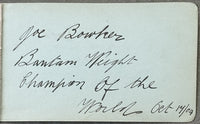 Joe Bowker
Bantam Weight
Champion Of the
World Oct 19/04